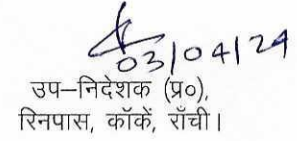 03/04/24
उप–निदेशक (प्र०),
रिनपास, कॉके, राँची।